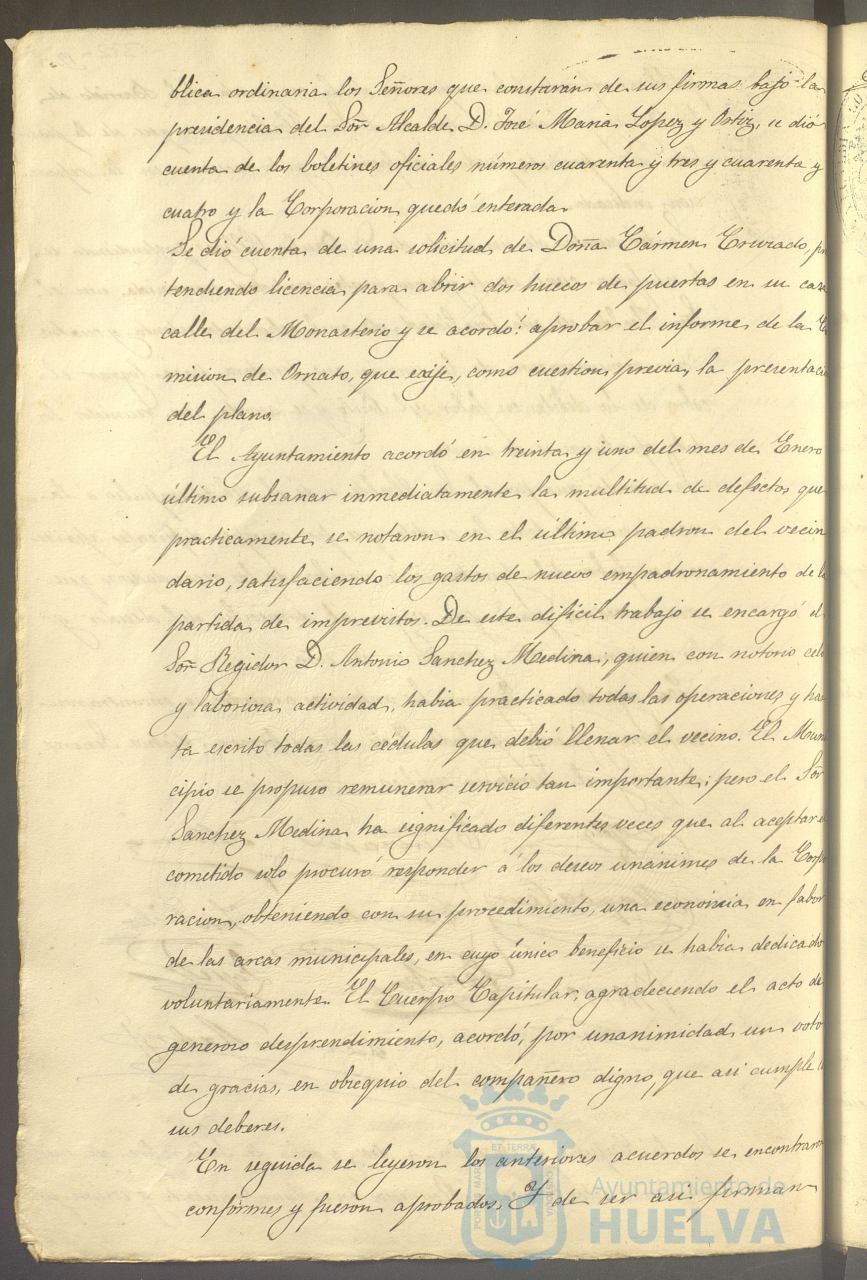 blica ordinaria los Señores que constarán de sus firmas bajo la
presidencia del Sor Alcalde D. José Maria Lopez y Ortiz, se dió
cuenta de los boletines oficiales números cuarenta y tres y cuarenta y
cuatro y la Corporacion quedó enterada.
Se dió cuenta de una solicitud de Doña Cármen Cruzado, pre
tendiendo licencia para abrir dos huecos de puertas en su casa
calle del Monasterio y se acordó: aprobar el informe de la Co
mision de Ornato, que exije, como cuestion previa, la presentacion
del plano.
El Ayuntamiento acordó en treinta y uno del mes de Enero
último subsanar inmediatamente la multitud de defectos que
practicamente se notaron en el último padron del vecin
dario, satisfaciendo los gastos de nuevo empadronamiento de la
partida de imprevistos. De este dificil trabajo se encargó el
Sor Regidor D. Antonio Sanchez Medina, quien con notorio celo
y laboriosa actividad, habia practicado todas las operaciones y has
ta escrito todas las cédulas que debió llenar el vecino. El Muni
cipio se propuso remunerar servicio tan importante; pero el Sor
Sanchez Medina ha significado diferentes veces que al aceptar el
cometido solo procuró responder á los deseos unanimes de la Corpo
racion, obteniendo con su procedimiento, una economia en fabor
de las arcas municipales, en cuyo único beneficio se habia dedicado
voluntariamente. El Cuerpo Capitular, agradeciendo el acto de
generoso desprendimiento, acordó, por unanimidad un voto
de gracias, en obsequio del compañero digno, que asi cumple
sus deberes.
En seguida se leyeron los anteriores acuerdos se encontraron
conformes y fueron aprobados. Y de ser asi firman
Ayuntamiento de
HUELVA